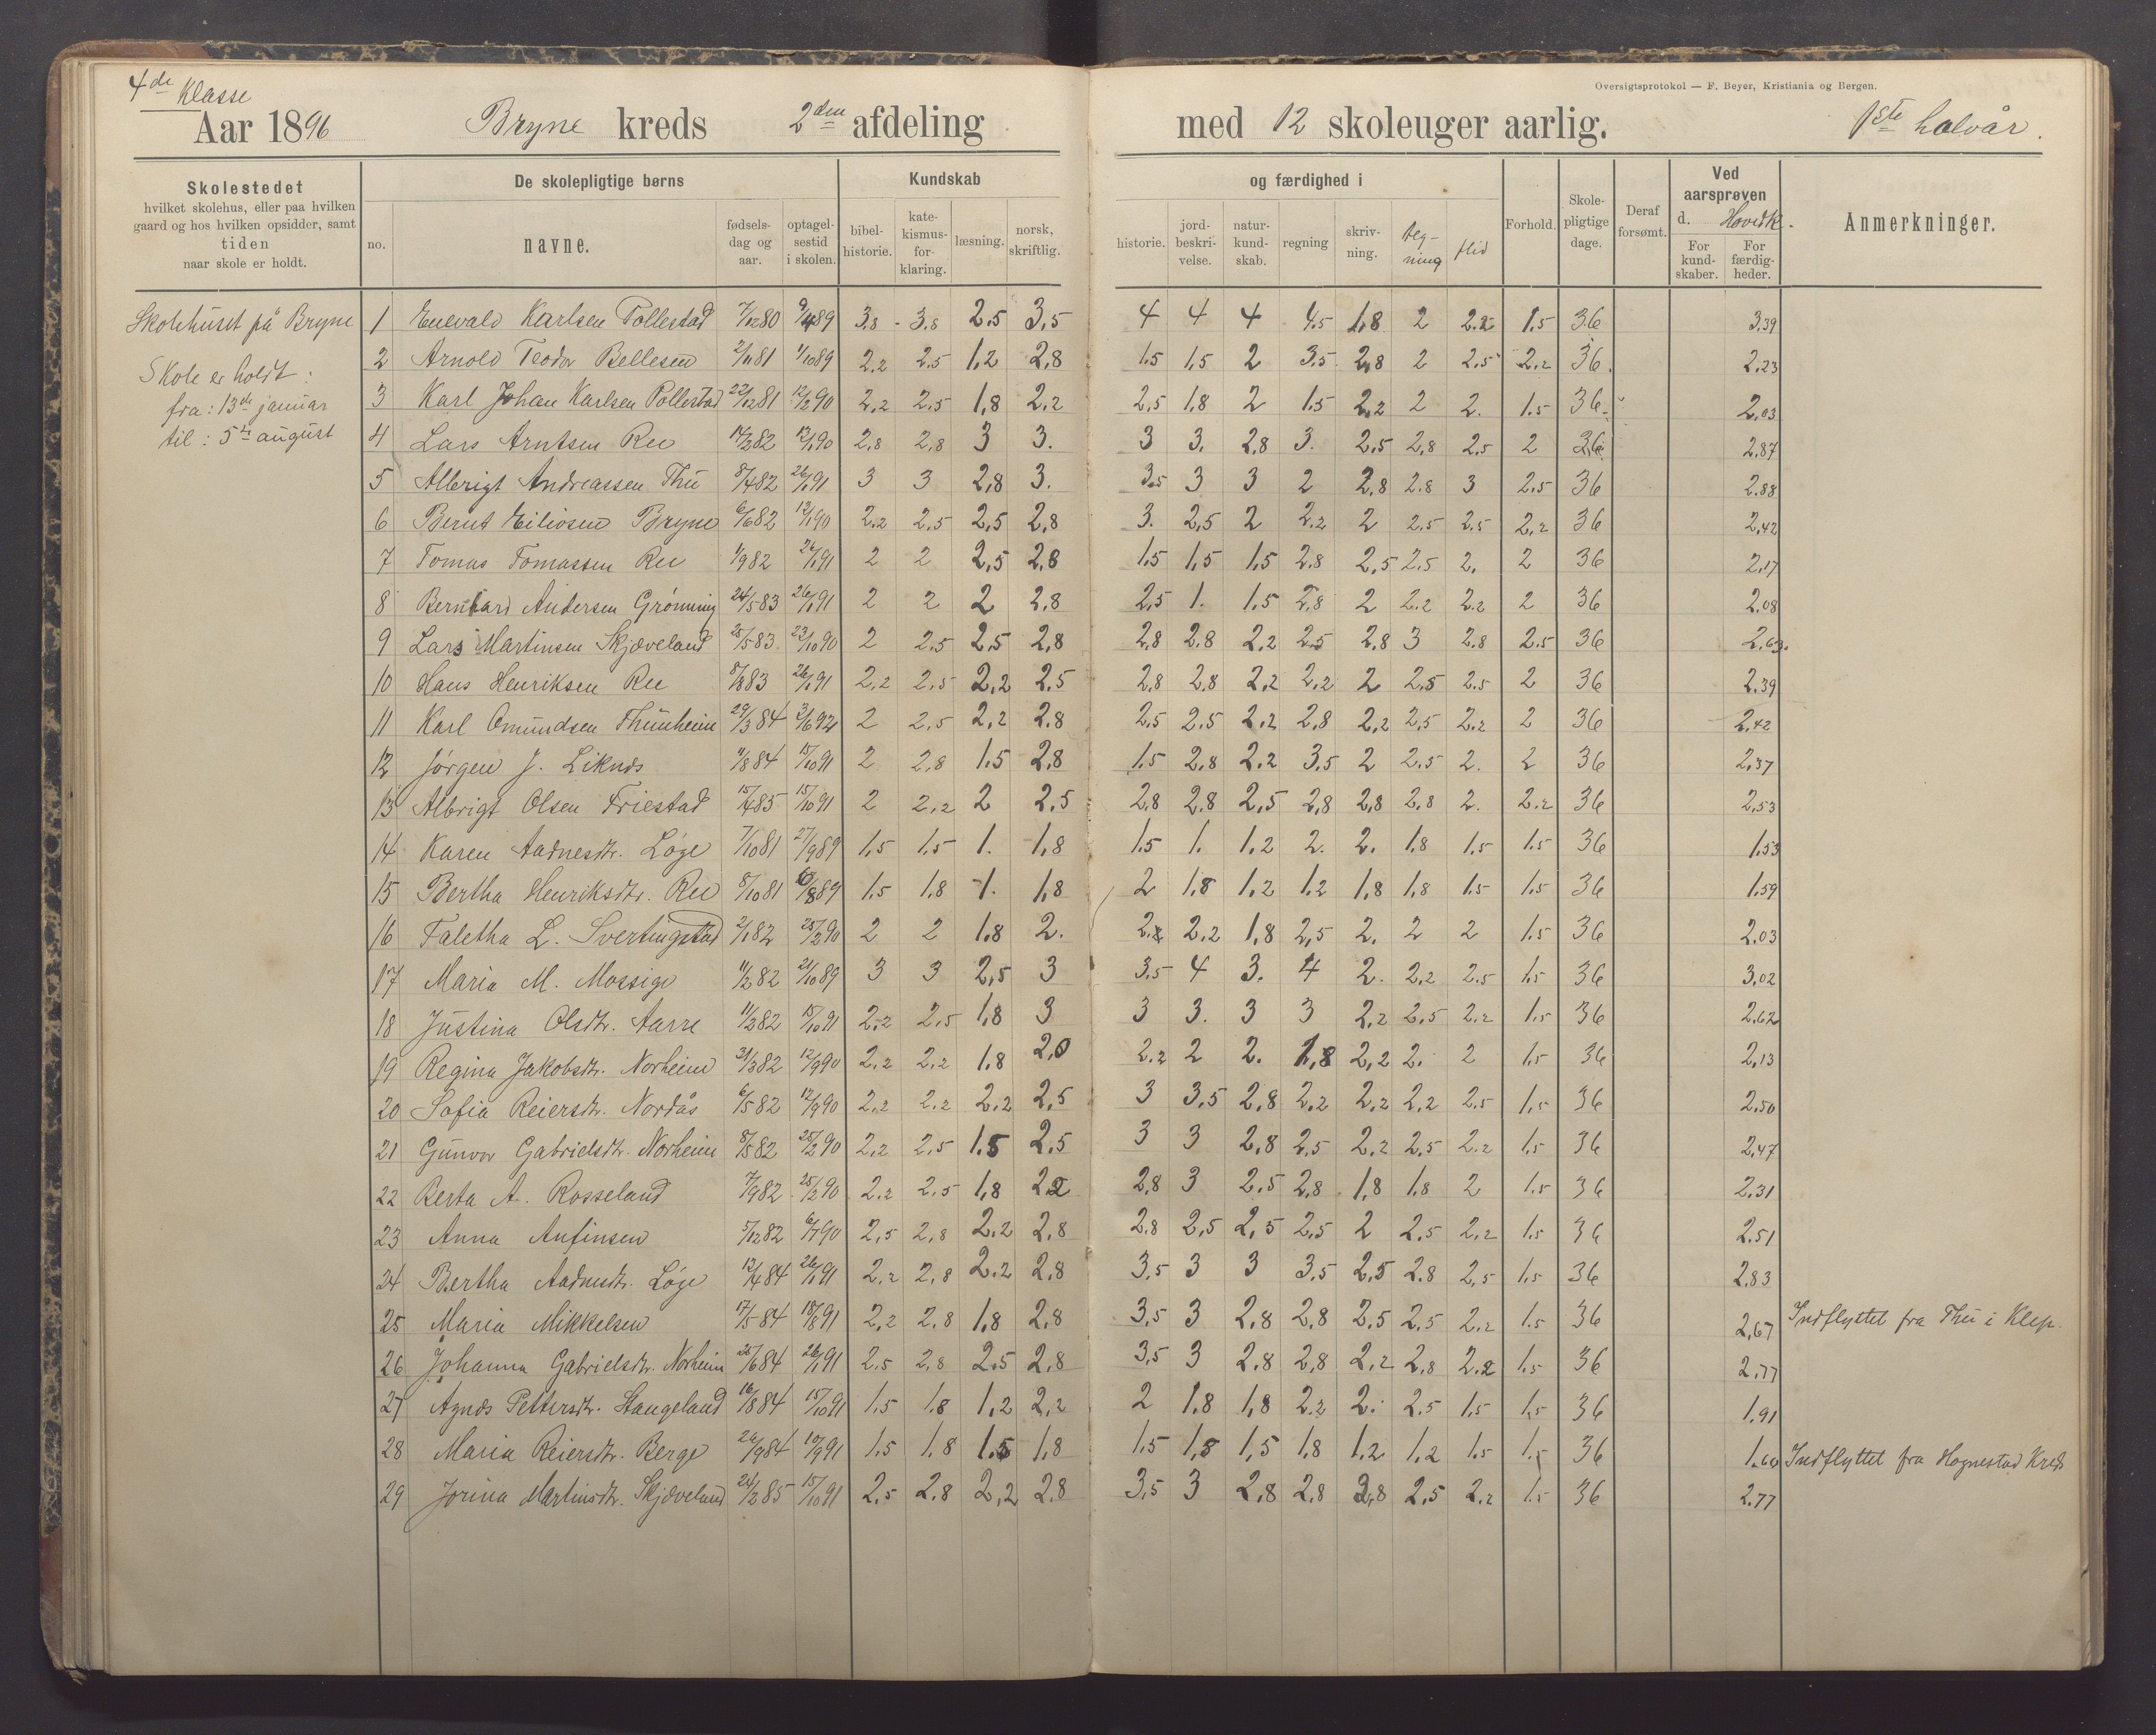 4de Klasse
Aar 1896 Bryne kreds 2den afdeling med 12 skoleuger aarlig. 1ste halvår.
Oversigtsprotokol — F. Beyer, Kristiania og Bergen.
Skolestedet
hvilket skolehus, eller paa hvilken
gaard og hos hvilken opsidder, samt
tiden
naar skole er holdt.
De skolepligtige børns
no. navne. fødsels-dag og aar. optagel-sestid i skolen.
Kundskab og færdighed i
bibel-historie. kate-kismus-for-klaring. læsning. norsk, skriftlig. historie. jord-beskri-velse. natur-kund-skab. regning skriv-ning. teg-ning flid
Forhold. Skole-pligtige dage. Deraf forsømt.
Ved aarsprøven d. Hovedk.
For kund-skaber. For færdig-heder.
Anmerkninger.
Skolehuset på Bryne
Skole er holdt:
fra: 13de januar
til: 5te august
1 Enevald Karlsen Pollestad 7/12 80 9/4 89 3,8 3,8 2,5 3,5 4 4 4 4,5 1,8 2 2,2 1,5 36 3,39
2 Arnold Teodor Bellesen 2/11 81 1/10 89 2,2 2,5 1,2 2,8 1,5 1,5 2 3,5 2,8 2 2,5 2,2 36 2,23
3 Karl Johan Karlsen Pollestad 22/12 81 12/2 90 2,2 2,5 1,8 2,2 2,5 1,8 2 1,5 2,2 2 2. 1,5 36 2,03
4 Lars Arntsen Ree 14/2 82 13/1 90 2,8 2,8 3 3. 3 3. 2,8 3. 2,5 2,8 2,5 2 36 2,87
5 Albrigt Andreassen Thu 8/4 82 26/1 91 3 3 2,8 3. 3,5 3 3 2 2,8 2,8 3 2,5 36 2,88
6 Bernt Eiliosen Bryne 6/6 82 13/1 90 2,2 2,5 2,5 2,8 3. 2,5 2 2,2 2 2,5 2,5 2,2 36 2,42
7 Tomas Tomassen Ree 1/9 82 26/1 91 2 2 2,5 2,8 1,5 1,5 1,5 2,8 2,5 2,5 2. 2 36 2,17
8 Bernhard Andersen Grønning 24/5 83 26/1 91 2 2 2 2,8 2,5 1. 1,5 2,8 2 2,2 2,2 2 36 2,08
9 Lars Martinsen Skjæveland 28/5 83 23/10 90 2 2,5 2,5 2,8 2,8 2,8 2,2 2,5 2,8 3 2,8 2,5 36 2,63.
10 Hans Henriksen Ree 8/8 83 26/1 91 2,2 2,5 2,2 2,5 2,8 2,8 2,2 2,2 2 2,5 2,5 2 36 2,39
11 Karl Omundsen Thunheim 29/3 84 3/6 92 2 2,5 2,2 2,8 2,5 2,5 2,2 2,8 2,2 2,5 2,2 2 36 2,42
12 Jørgen J. Liknes 1/8 84 15/10 91 2 2,8 1,5 2,8 1,5 2,8 2,2 3,5 2 2,5 2. 2 36 2,37
13 Albrigt Olsen Friestad 15/4 85 15/10 91 2 2,2 2 2,5 2,8 2,8 2,5 2,8 2,8 2,8 2. 2,2 36 2,53
14 Karen Aadnesdtr. Løge 7/10 81 27/9 89 1,5 1,5 1. 1,8 1,5 1. 1,2 2. 2. 1,8 1,5 1,5 36 1,53
15 Bertha Henriksdtr. Ree 8/10 81 8 89 1,5 1,8 1. 1,8 2 1,8 1,2 1,2 1,8 1,8 1,5 1,5 36 1,59
16 Taletha L. Svertingstad 2/1 82 25/2 90 2 2 1,8 2. 2,2 2,2 1,8 2,5 2. 2 2 1,5 36 2,03
17 Maria M. Mossige 11/2 82 21/10 89 3 3 2,5 3 3,5 4 3. 4 2. 2,2 2,5 1,5 36 3,02
18 Justina Olsdtr. Aarre 11/2 82 15/10 91 2,2 2,5 1,8 3 3 3. 3 3 2,2 2,5 2,2 1,5 36 2,62
19 Regina Jakobsdtr. Norheim 31/3 82 12/9 90 2,2 2,2 1,8 2,0 2,2 2 2. 1,8 2,2 2. 2 1,5 36 2,13
20 Sofia Reiersdtr. Nordås 6/5 82 12/9 90 2,2 2,2 2,2 2,5 3 3,5 2,8 2,2 2,2 2,2 2,5 1,5 36 2,50
21 Gunvor Gabrielsdtr. Norheim 8/8 82 25/2 90 2,2 2,5 1,5 2,5 3 3 2,8 2,5 2,2 2,5 2,2 1,5 36 2,47
22 Berta A. Rosseland 7/9 82 25/2 90 2,2 2,5 1,8 2,2 2,8 3 2,5 2,8 1,8 1,8 2 1,5 36 2,31
23 Anna Anfinsen 5/12 82 6/7 90 2,5 2,8 2,2 2,8 2,8 2,5 2,5 2,5 2 2,5 2,2 1,5 36 2,51
24 Bertha Aadnesdtr. Løge 12/4 84 26/1 91 2,2 2,8 2,2 2,8 3,5 3 3 3,5 2,5 2,8 2,5 1,5 36 2,83
25 Maria Mikkelsen 17/5 84 18/8 91 2,2 2,8 1,8 2,8 3,5 3 2,8 2,8 2,5 2,5 2,2 1,5 36 2,67 Indflyttet fra Thu i Klep.
26 Johanna Gabrielsdtr. Norheim 25/6 84 26/1 91 2,5 2,8 2,5 2,8 3,5 3 2,8 2,8 2,2 2,8 2,2 1,5 36 2,77
27 Agnes Pettersdtr. Stangeland 16/8 84 15/10 91 1,5 1,8 1,2 2,2 2 1,8 1,8 2,2 2. 2,5 1,5 1,5 36 1,91
28 Maria Reiersdtr. Berge 26/9 84 10/9 91 1,5 1,8 1,5 1,8 1,5 1,8 1,5 1,8 1,2 1,2 1,5 1,5 36 1,60 Indflyttet fra Hognestad Kreds
29 Jorina Martinsdtr. Skjæveland 24/2 85 15/10 91 2,5 2,8 2,2 2,8 3,5 3 2,8 2,8 2,8 2,5 2,2 1,5 36 2,77